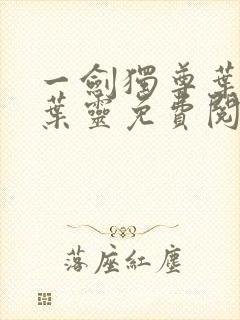 一劍獨尊葉
葉靈免費閱
落座紅塵